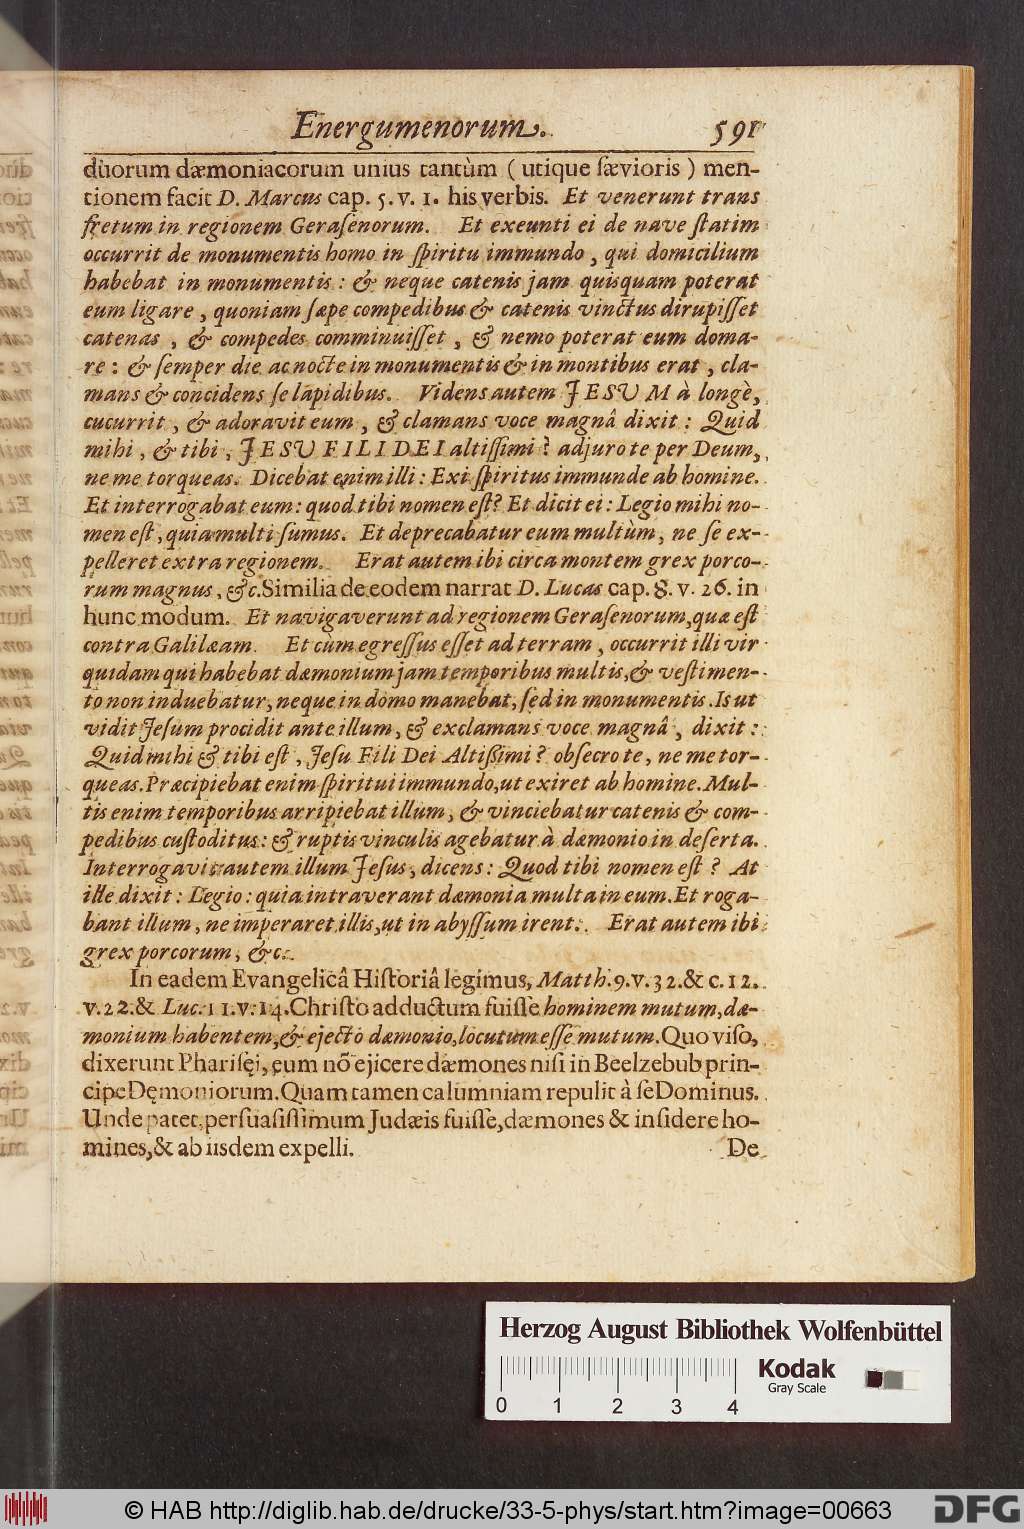 Energumenorum. 591
duorum dæmoniacorum unius tantùm ( utique ſævioris ) men-
tionem facit D. Marcus cap. 5. v. 1. his verbis. Et venerunt trans
fretum in regionem Geraſenorum. Et exeunti ei de nave ſtatim
occurrit de monumentis homo in ſpiritu immundo, qui domicilium
habebat in monumentis: & neque catenis jam quisquam poterat
eum ligare, quoniam ſæpe compedibus & catenis vinctus dirupiſſet
catenas, & compedes comminuiſſet, & nemo poterat eum doma-
re: & ſemper die ac nocte in monumentis & in montibus erat, cla-
mans & concidens ſe lapidibus. Videns autem JESUM à longè,
cucurrit, & adoravit eum, & clamans voce magnâ dixit: Quid
mihi, & tibi, JESU FILI DEI altiſſimi? adjuro te per Deum,
ne me torqueas. Dicebat enim illi: Exi ſpiritus immunde ab homine.
Et interrogabat eum: quod tibi nomen eſt? Et dicit ei: Legio mihi no-
men eſt, quia multi ſumus. Et deprecabatur eum multùm, ne ſe ex-
pelleret extra regionem. Erat autem ibi circa montem grex porco-
rum magnus, &c. Similia de eodem narrat D. Lucas cap. 8. v. 26. in
hunc modum. Et navigaverunt ad regionem Geraſenorum, quæ eſt
contra Galilæam. Et cùm egreſſus eſſet ad terram, occurrit illi vir
quidam qui habebat dæmonium jam temporibus multis, & veſtimen-
to non induebatur, neque in domo manebat, ſed in monumentis. Is ut
vidit Jeſum procidit ante illum, & exclamans voce magnâ, dixit:
Quid mihi & tibi eſt, Jeſu Fili Dei Altißimi? obſecro te, ne me tor-
queas. Præcipiebat enim ſpiritui immundo, ut exiret ab homine. Mul-
tis enim temporibus arripiebat illum, & vinciebatur catenis & com-
pedibus cuſtoditus: & ruptis vinculis agebatur à dæmonio in deſerta.
Interrogavit autem illum Jeſus, dicens: Quod tibi nomen eſt? At
ille dixit: Legio: quia intraverant dæmonia multa in eum. Et roga-
bant illum, ne imperaret illis, ut in abyſſum irent. Erat autem ibi
grex porcorum, &c.
In eadem Evangelicâ Hiſtoriâ legimus, Matth. 9. v. 32. & c. 12.
v. 22. & Luc. 11. v. 14. Chriſto adductum fuiſſe hominem mutum, dæ-
monium habentem, & ejecto dæmonio, locutum eſſe mutum. Quo viſo,
dixerunt Phariſęi, eum nõ ejicere dæmones niſi in Beelzebub prin-
cipe Dęmoniorum. Quam tamen calumniam repulit à ſe Dominus.
Unde patet, perſuaſiſſimum Judæis fuiſſe, dæmones & inſidere ho-
mines, & ab iisdem expelli. De
Herzog August Bibliothek Wolfenbüttel
Kodak
Gray Scale
0 1 2 3 4
© HAB http://diglib.hab.de/drucke/33-5-phys/start.htm?image=00663
DFG